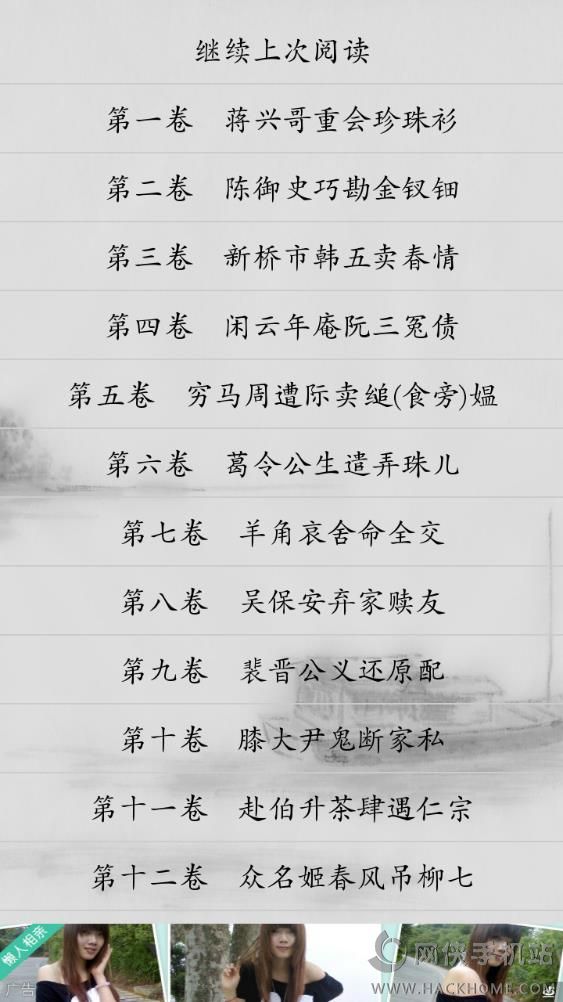 继续上次阅读
第一卷 蒋兴哥重会珍珠衫
第二卷 陈御史巧勘金钗钿
第三卷 新桥市韩五卖春情
第四卷 闲云年庵阮三冤债
第五卷 穷马周遭际卖缒(食旁)媪
第六卷 葛令公生遣弄珠儿
第七卷 羊角哀舍命全交
第八卷 吴保安弃家赎友
第九卷 裴晋公义还原配
第十卷 滕大尹鬼断家私
第十一卷 赴伯升茶肆遇仁宗
第十二卷 众名姬春风吊柳七
懒人相亲
广告
网侠手机站
WWW.HACKHOME.COM